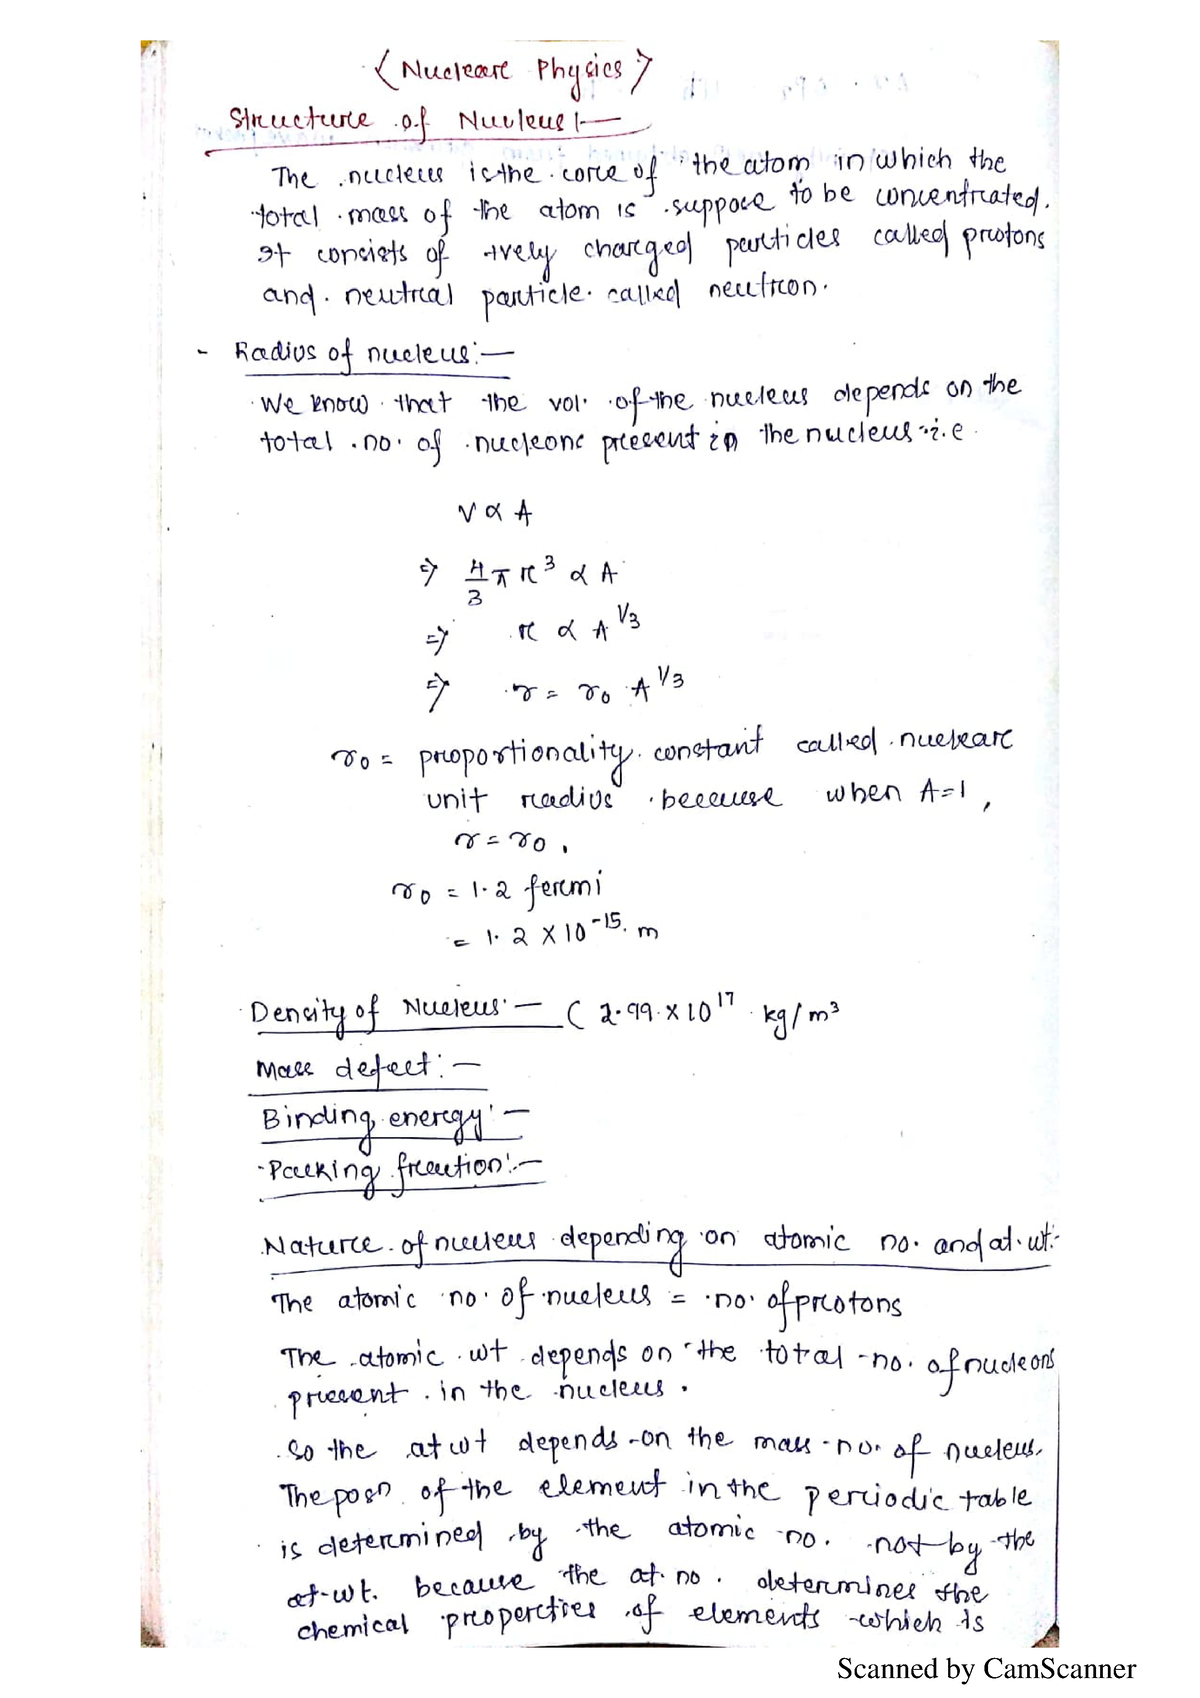 < Nuclear Physics >
Structure of Nucleus :—
The nucleus is the core of the atom in which the
total mass of the atom is suppose to be concentrated.
It consists of +vely charged particles called protons
and neutral particle called neutron.
- Radius of nucleus :—
We know that the vol. of the nucleus depends on the
total no. of nucleons present in the nucleus i.e
V ∝ A
⇒ 4/3 π r³ ∝ A
⇒ r ∝ A^1/3
⇒ r = r₀ A^1/3
r₀ = proportionality constant called nuclear
unit radius because when A=1,
r = r₀,
r₀ = 1.2 fermi
= 1.2 × 10^-15 m
Density of Nucleus :— ( 2.99 × 10^17 kg/m³
Mass defect :—
Binding energy :—
Packing fraction :—
Nature of nucleus depending on atomic no. and at. wt:-
The atomic no. of nucleus = no. of protons
The atomic wt depends on the total no. of nucleons
present in the nucleus.
So the at wt depends on the mass no. of nucleus.
The posn of the element in the periodic table
is determined by the atomic no. not by the
at-wt. because the at. no. determines the
chemical properties of elements which is
Scanned by CamScanner